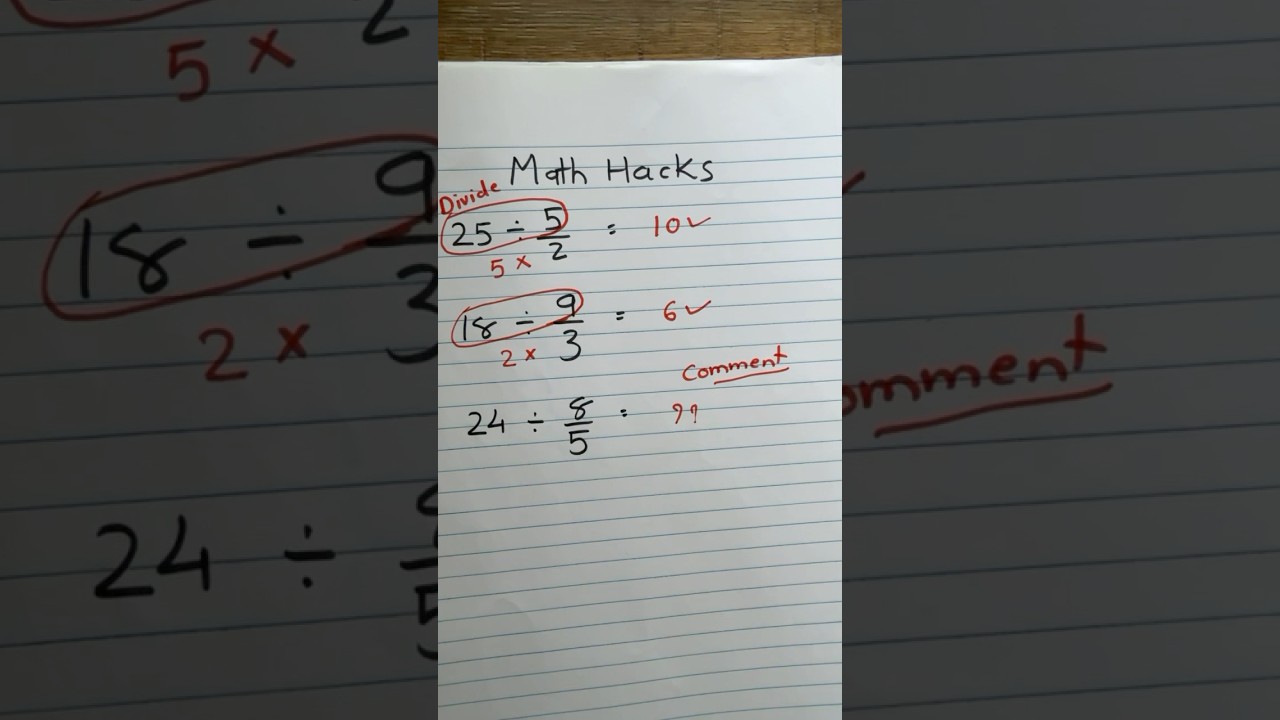 Math Hacks
Divide
25 ÷ 5/2 = 10✓
5 ×
18 ÷ 9/3 = 6✓
2 ×
Comment
24 ÷ 8/5 = ??